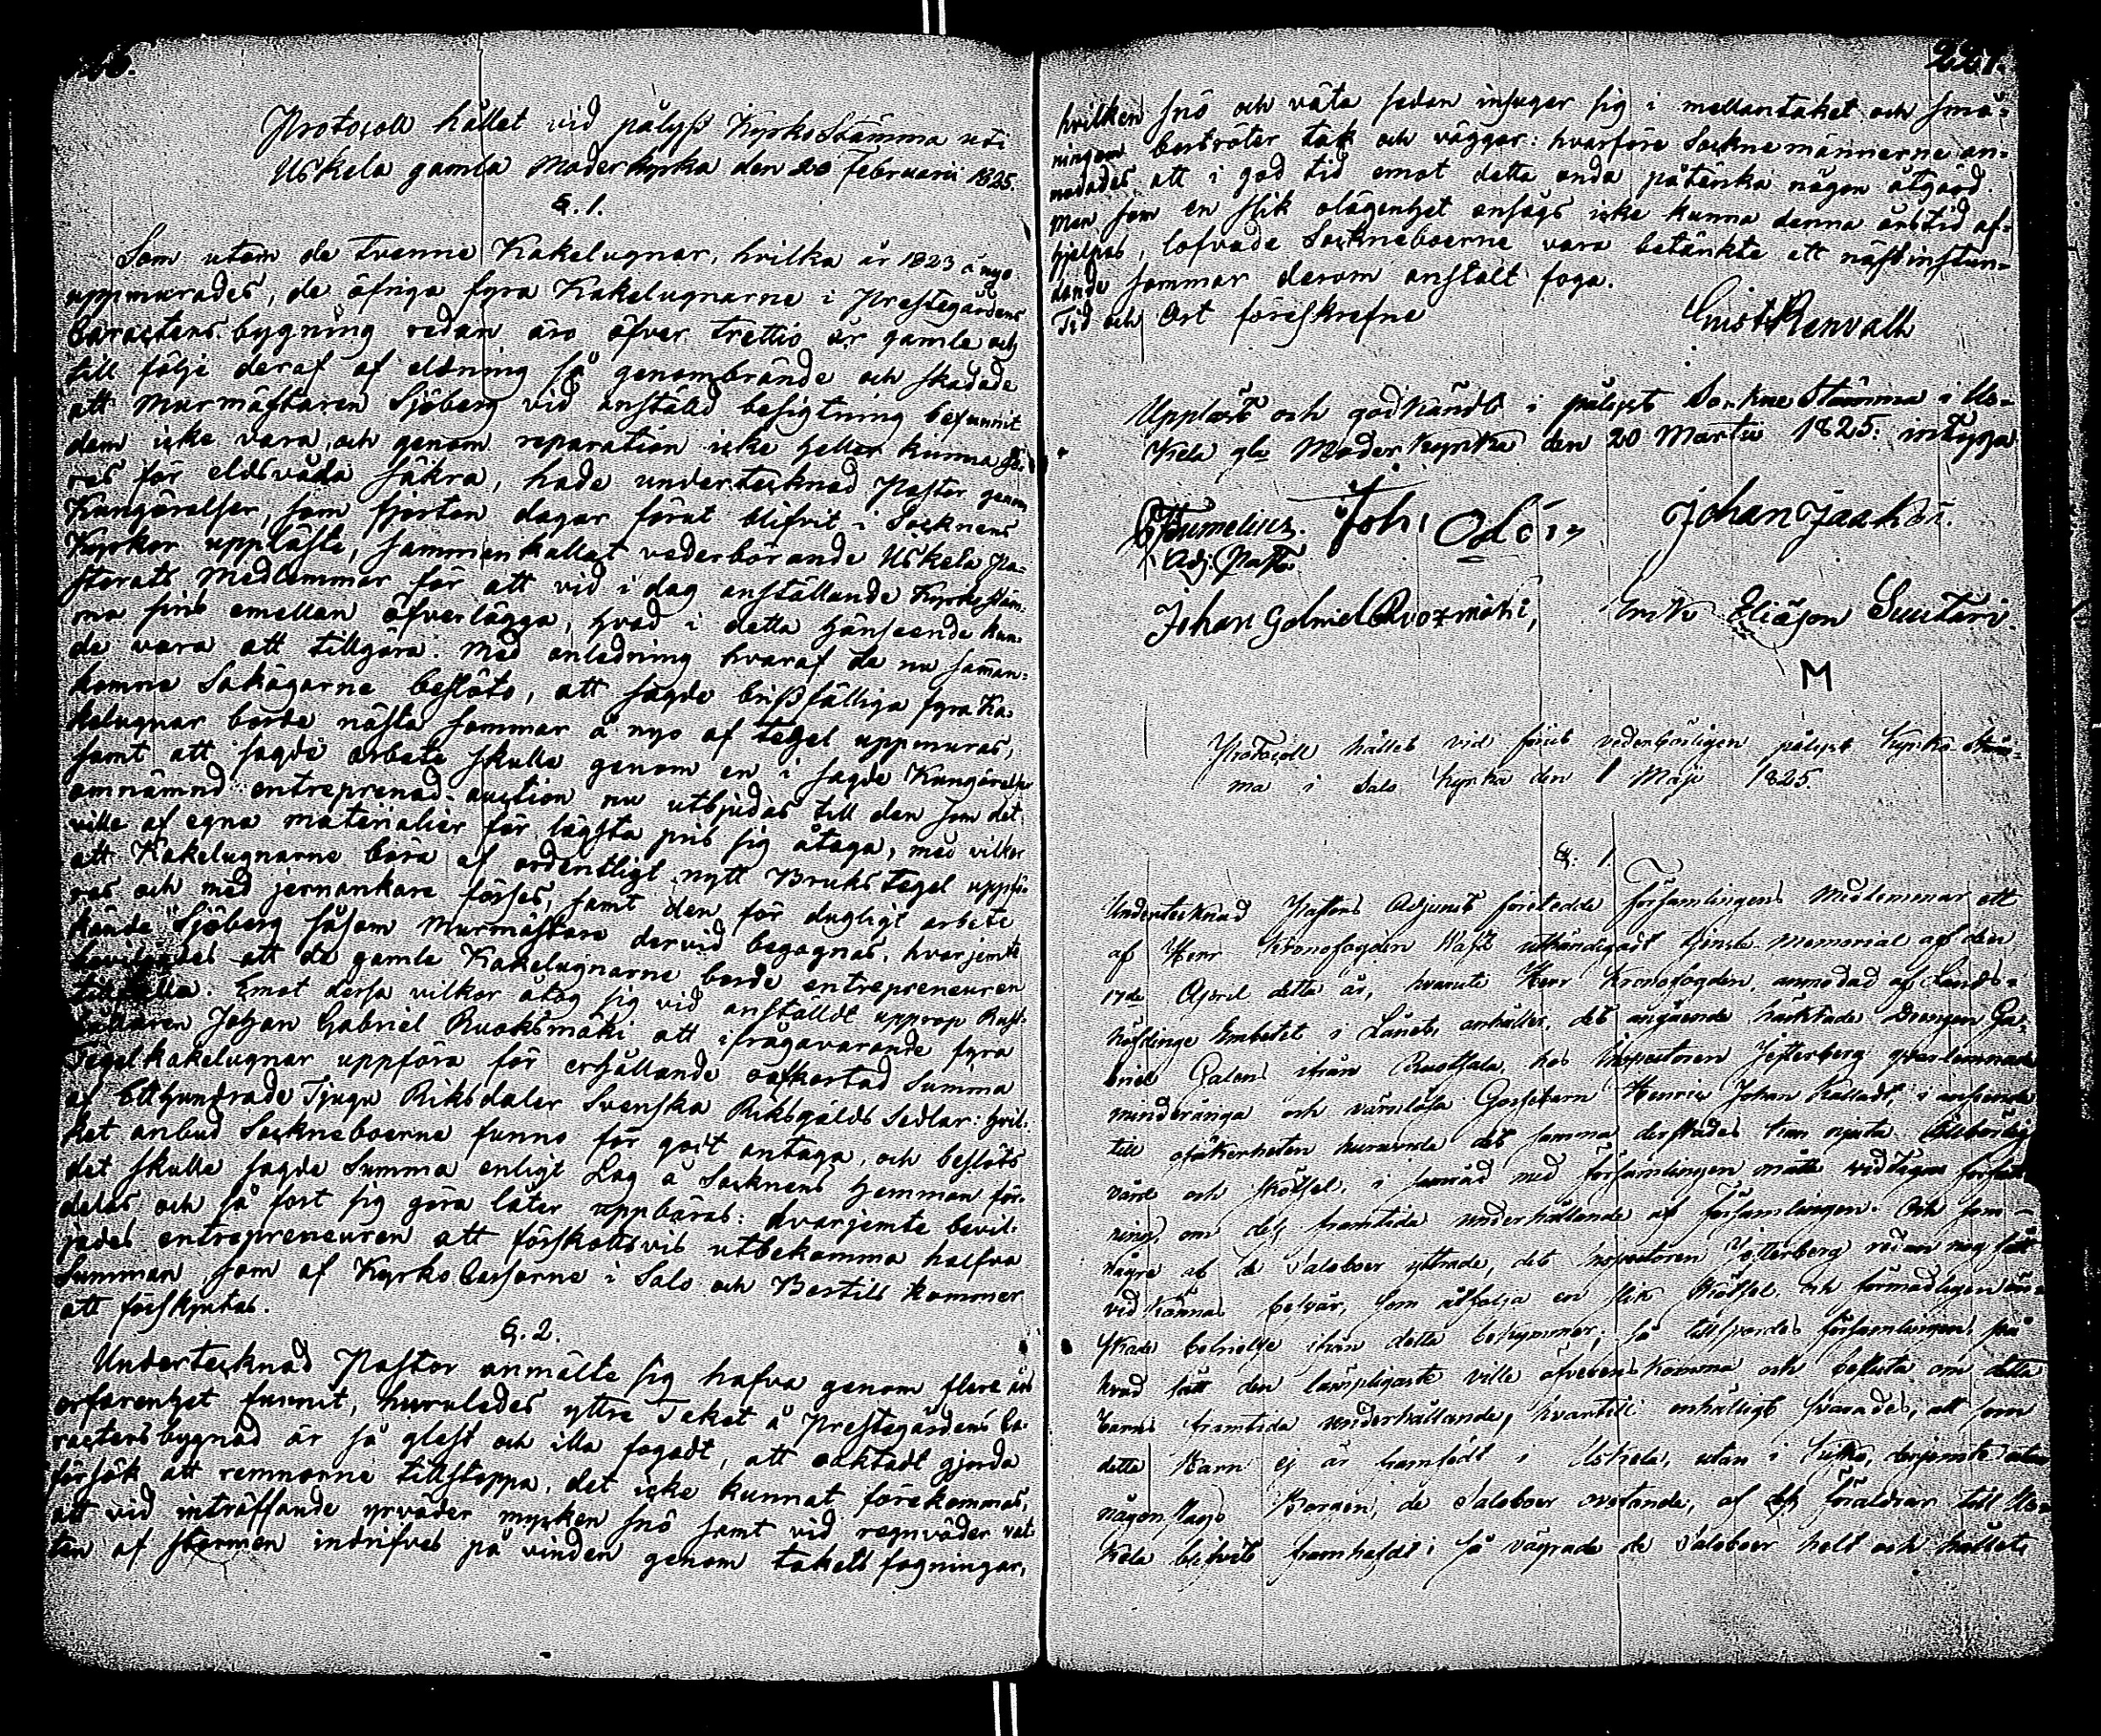 Protocoll hållet vid pålyst KyrkoStämma uti
Uskela gamla Moderkyrka den 20 Februarii 1825.
§. 1.
Som utom de tvenne Kakelugnar, hvilka år 1823 å nyo
uppmurades, de öfriga fyra Kakelugnarne i Prestegårdens
Caractersbygning redan äro öfver trettio år gamle och
till följe deraf af eldning så genombrände och skadade
att Murmästaren Sjöberg vid anstäld besigtning befunnit
dem icke vara, och genom reparation icke heller kunna gö-
ras för eldsvåda säkra, hade undertecknad Pastor genom
Kungörelser, som fjorton dagar förut blifvit i Socknens
Kyrkor uppläste, sammankallat vederbörande Uskela Pa-
storats Medlemmar för att vid i dag anställande Kyrkostäm-
ma sins emellan öfverlägga, hvad i detta hänseende kun-
de vara att tillgöra. Med anledning hvaraf de nu samman-
komne Sakägarne beslöto, att sagde brißfälliga fyra Ka-
kelugnar borde nästa sommar å nyo af tegel uppmuras,
samt att sagde arbete skulle genom en i sagde Kungörelse
omnämnd entreprenad-auction nu utbjudas till den som det
ville af egna materialier för lägsta pris sig åtaga, med vilkor
att Kakelugnarne böra af ordentligt nytt Brukstegel uppfö-
ras och med jernankare förses, samt den för dugligt arbete
kände Sjöberg såsom Murmästare dervid begagnas, hvarjemte
att de gamla Kakelugnarne borde entrepreneuren
tillfalla. Emot dessa vilkor åtog sig vid anstäldt upprop Rust-
hållaren Johan Gabriel Ruoksmäki att ifrågavarande fyra
Tegelkakelugnar uppföra för erhållande Summa
af Etthundrade Tjugu Riksdaler Svenska Riksgälds Sedlar: hvil-
ket anbud Sockneboerne funno för godt antaga, och beslöts
det skulle sagde Summa enligt Lag å Socknens Hemman för-
delas och så fort sig göra låter uppbäras: hvarjemte bevil-
jades entrepreneuren att förskottsvis utbekomma halfva
Summan som af KyrkoCassorne i Salo och Bastill kommer
att förskjutas.
§. 2.
Undertecknad Pastor anmälte sig hafva genom flere års
erfarenhet funnit, huruledes yttre Taket å Prestegårdens Ca-
ractersbygnad är så glest och illa fogadt, att oaktadt gjorda
försök att remnorne tillstoppa, det icke kunnat förekommas,
att vid inträffande yrväder mycken snö samt vid regnväder vat-
ten af stormen indrifves på vinden genom takets fogningar,
221.
hvilken snö och väta sedan insuger sig i mellantaket och små-
ningom bortröter tak och väggar: hvarföre Sockne männerne an-
modades att i god tid emot detta onda påtänka någon åtgärd.
Men som en slik olägenhet ansågs icke kunna denna årstid af-
hjelpas, lofvade Sockneboerne vara betänkte att nästinstun-
dande sommar derom anstalt foga.
Tid och Ort föreskrefne
Renvall
Upplästt och godkändt i pålyst Sockne Stämma i Us-
kela gla Moderkyrka den 20 Martii 1825: intyga
Adj. Past.
Johan Jaakola.
Johan Gabriel Ruoxmäki, Eliäson Suutari.
M
Protocoll hållet vid förut vederbörligen pålyst Kyrko Stäm-
ma i Salo Kyrka den 1 Maji 1825.
§. 1
Undertecknad Pastors Adjunct företedde Församlingens Medlemmar ett
af Herr Kronofogden uthändigadt tjenste Memorial af den
17de April detta år, hvaruti Herr Kronofogden, anmodad af Lands-
höfdinge Embetet i Länet, anhåller, det angående häktade Drängen Ga-
briel Galens ifrån hos Inspectoren qvarlemnade
minderåriga och värnlösa Gossebarn Henric Johan kalladt, i anseende
till osäkerheten huruvida det samma derstädes kan njuta tillbörlig
vård och skötsel, i samråd med församlingen måtte vidtagas författ-
ning om dess framtida underhållande af församlingen. Och som
någre af de Saloboer yttrade, det Inspectoren redan nog fått
vidkännas besvär, som åtfölja en slik skötsel, och förmodligen ön-
skade befrielse ifrån detta bekymmer; så tillspordes församlingen, på
hvad sätt den lämpligaste ville öfverenskomma och besluta om detta
barns framtida underhållande, hvartill enhälligt svarades, att som
detta Barn ej är framfödt i Uskela, utan i derjemte utan
någon slags Borgen, de Saloboer ovetande, af dess föräldrar till Us-
kela blifvit framhafdt; så vägrade de Saloboer helt och hållet,